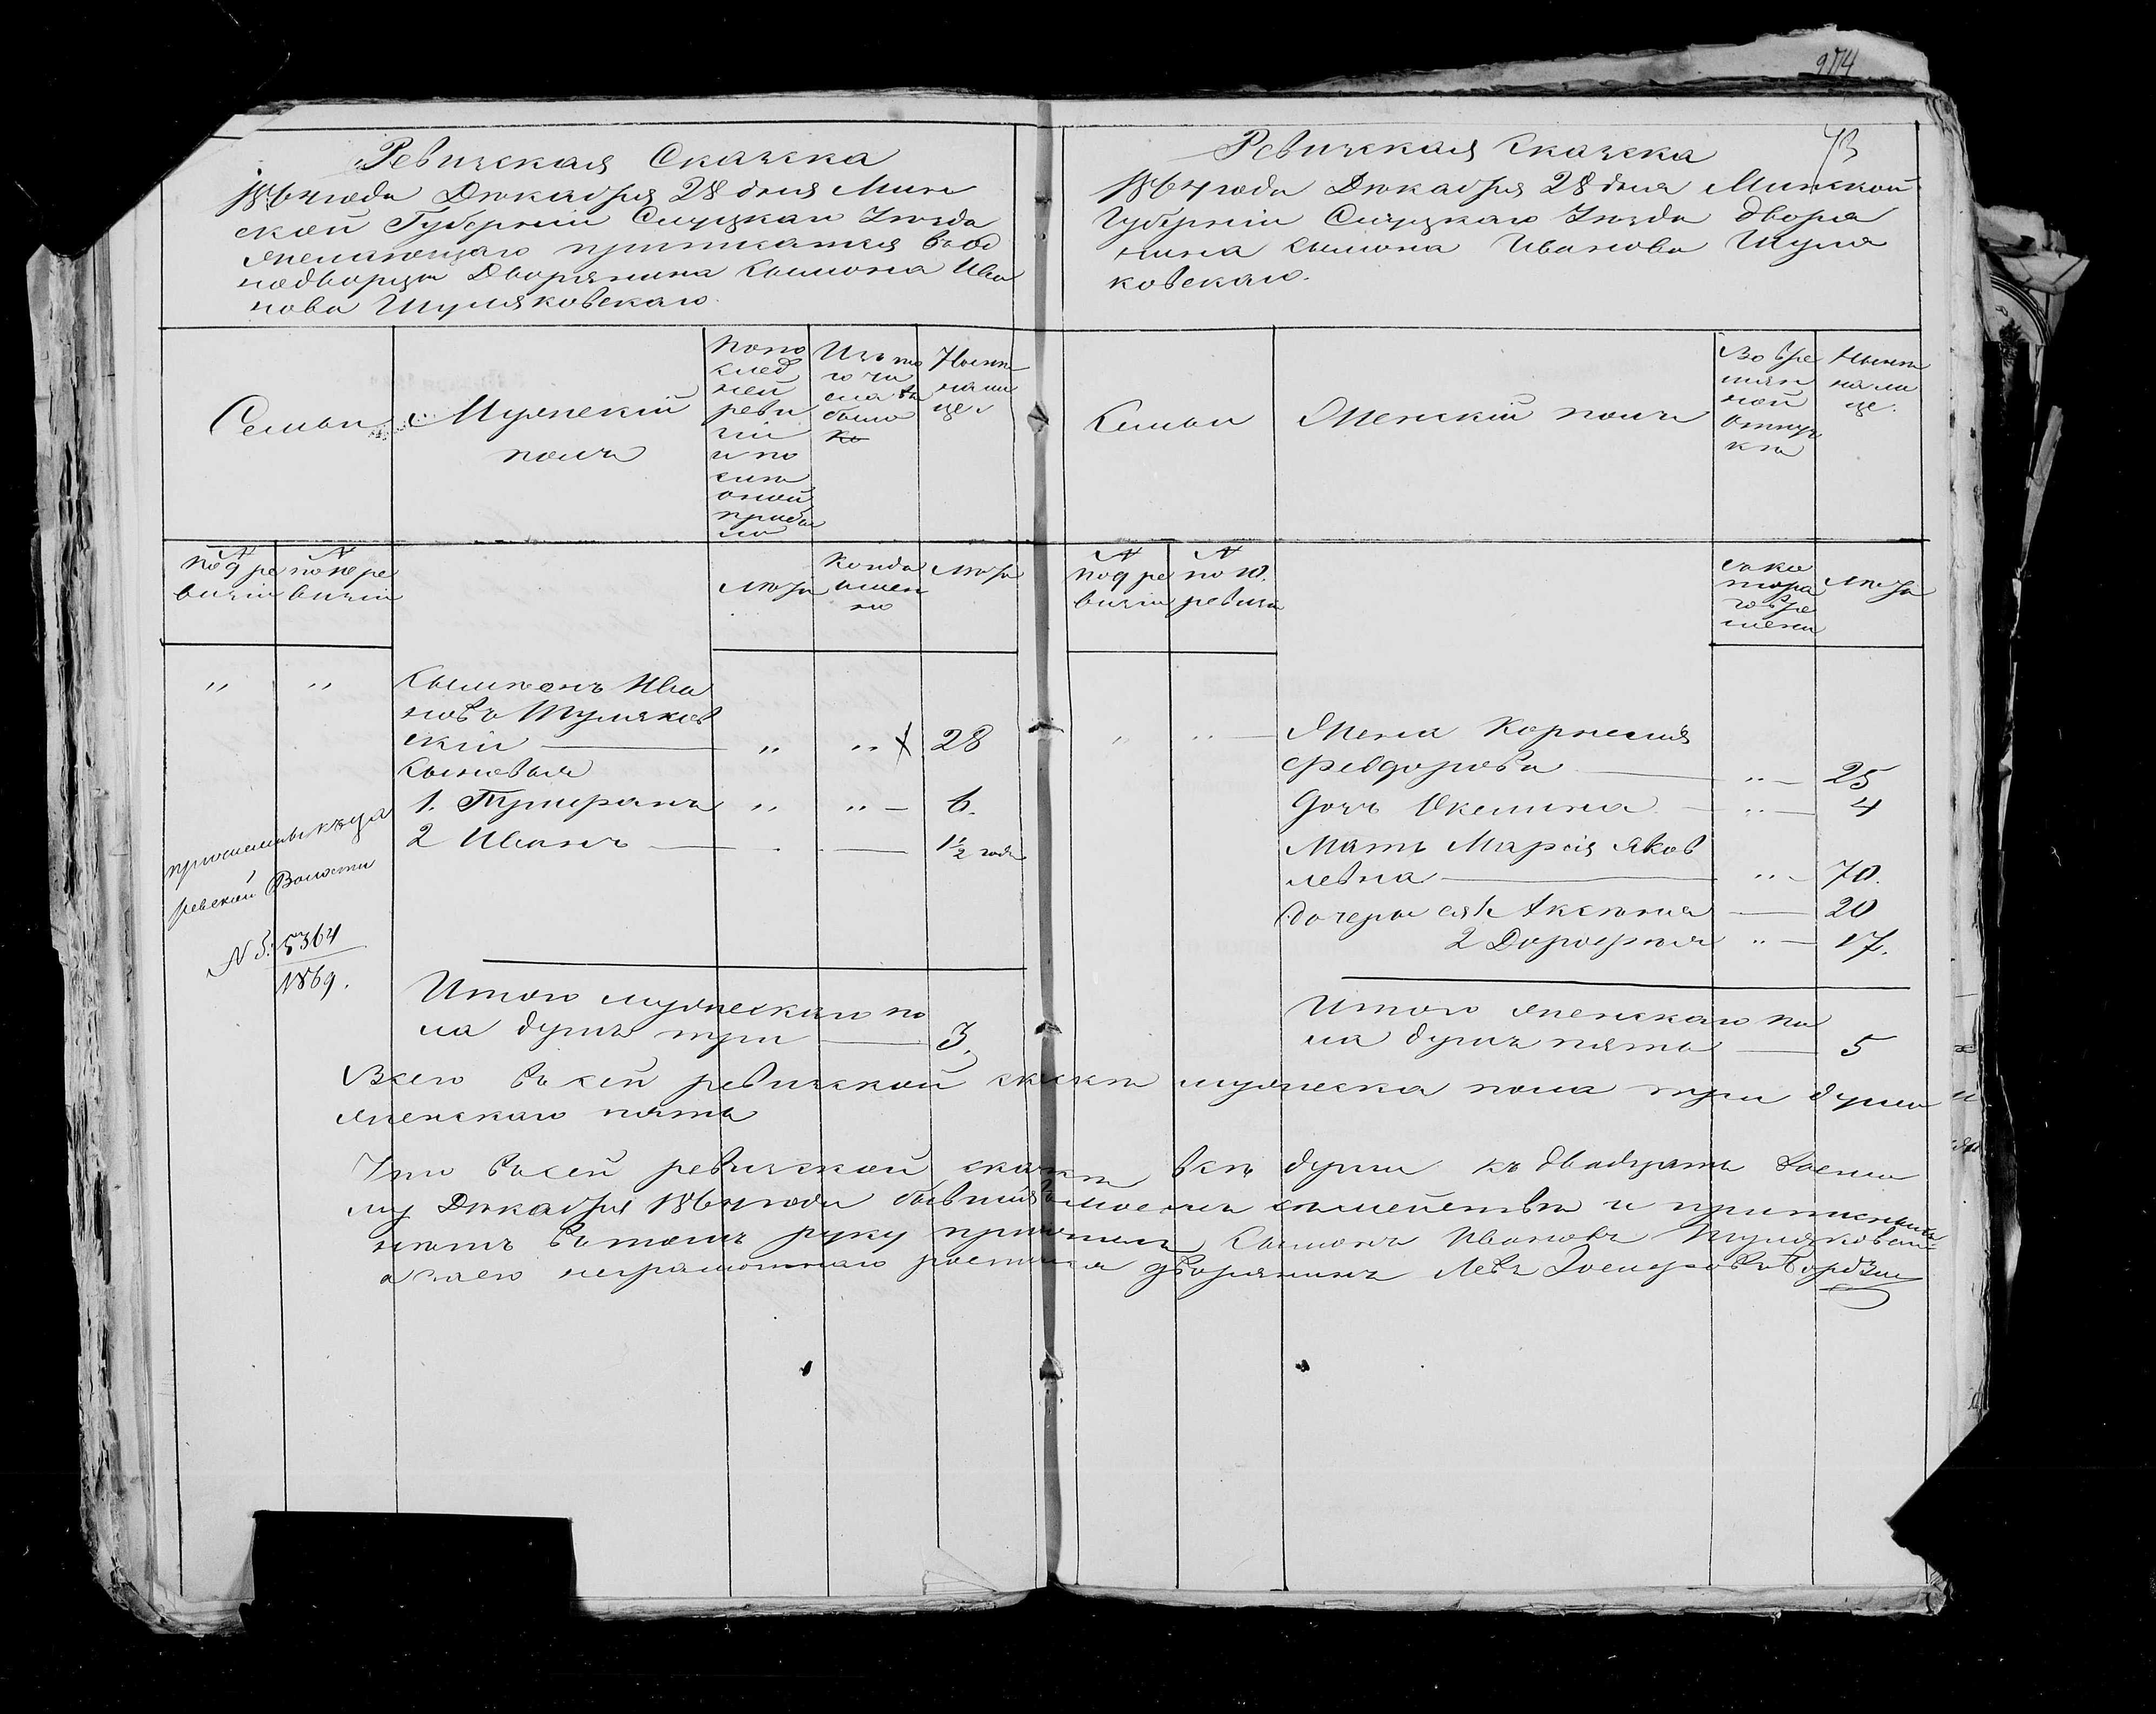 974
Ревизская Сказска
1864 года Декабря 28 дня Мин
ской Губерніи Слуцкаго Уезда
желающаго приписатся въ од
нодворцы Дворянина Сымона Ива
нова Шуляковскаго.
Семьи
Мужескій
полъ
По по
след
ней
реви
зіи
и по
сле
оной
прибы
ло
Изъ то
го чи
сла вы
было
Ныне
на ли
це.
№
по 9 ре
визіи
№
по 10 ре
визіи
лета
Когда
имен
но
лета
" " Сымонъ Ива
новъ Шуляков
скій " " 28
Сыновья
1. " " 6.
2 Иванъ 1½ года
причисленъ къ Ца
ревской Волости
5364
1869.
Итого мужескаго по
ла душъ три 3.
73
Ревизская Сказска
1864 года Декабря 28 дня Минской
Губерніи Слуцкаго Уезда дворя
нина Сымона Иванова Шуля
ковскаго.
Семьи
Женскій полъ
Во вре
мян
ной
отлуч
ке
Ныне
на ли
це.
№
по 9 ре
визіи
№
по 10.
ревизіи
съ ко
тора
го вре
мени
лета
" " Жена Корнелія
Федорова " 25
Дочь 4
Мать Марія Яков
левна " 70.
дочеры ея 1 Аксенія 20
2 " 17.
Итого женскаго по
ла душъ пять 5
Всего въ сей ревизской сказке мужеска пола три душы и
женскаго пять
Что въ сей ревизской сказке все душы къ двадцать восмо
му Декабря 1864 года бывшія въ моемъ семействе и
нетъ въ томъ руку Сымонъ Ивановъ Шуляковскій
а за его неграмотнаго дворянинъ Левъ